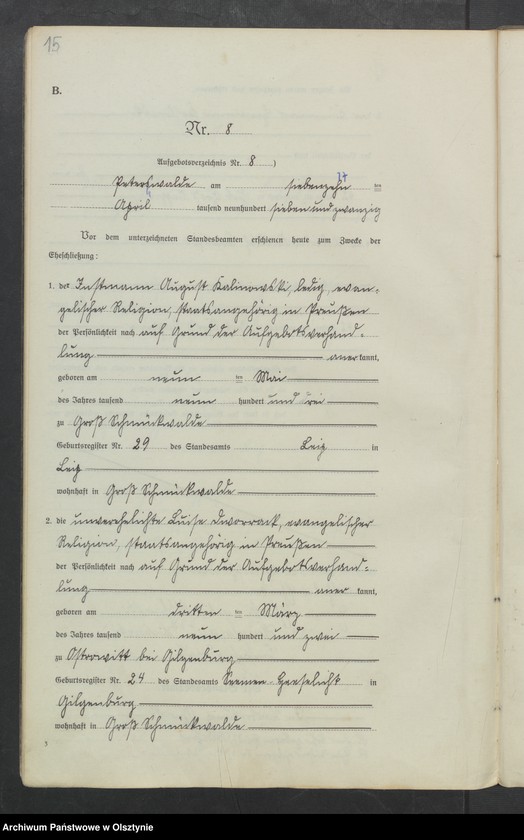 15
B.
Nr. 8
Aufgebotsverzeichnis Nr. 8 )
Peterswalde am siebenzehn 27 ten
April tausend neunhundert sieben und zwanzig
Vor dem unterzeichneten Standesbeamten erschienen heute zum Zwecke der
Eheschließung:
1. der Instmann August Kalinowski, ledig, evan-
gelischer Religion, staatsangehörig in Preußen
der Persönlichkeit nach auf Grund der Aufgebotsverhand-
lung anerkannt,
geboren am neun ten Mai
des Jahres tausend neun hundert und drei
zu Groß Schmückwalde
Geburtsregister Nr. 29 des Standesamts Leip in
Leip
wohnhaft in Groß Schmückwalde
2. die unverehelichte Luise Dworrack, evangelischer
Religion, staatsangehörig in Preußen
der Persönlichkeit nach auf Grund der Aufgebotsverhand-
lung aner kannt,
geboren am dritten ten März
des Jahres tausend neun hundert und zwei
zu Osterwitt bei Gilgenburg
Geburtsregister Nr. 24 des Standesamts Seemen-Geeselicht in
Gilgenburg
wohnhaft in Groß Schmückwalde
3
Archiwum Państwowe w Olsztynie